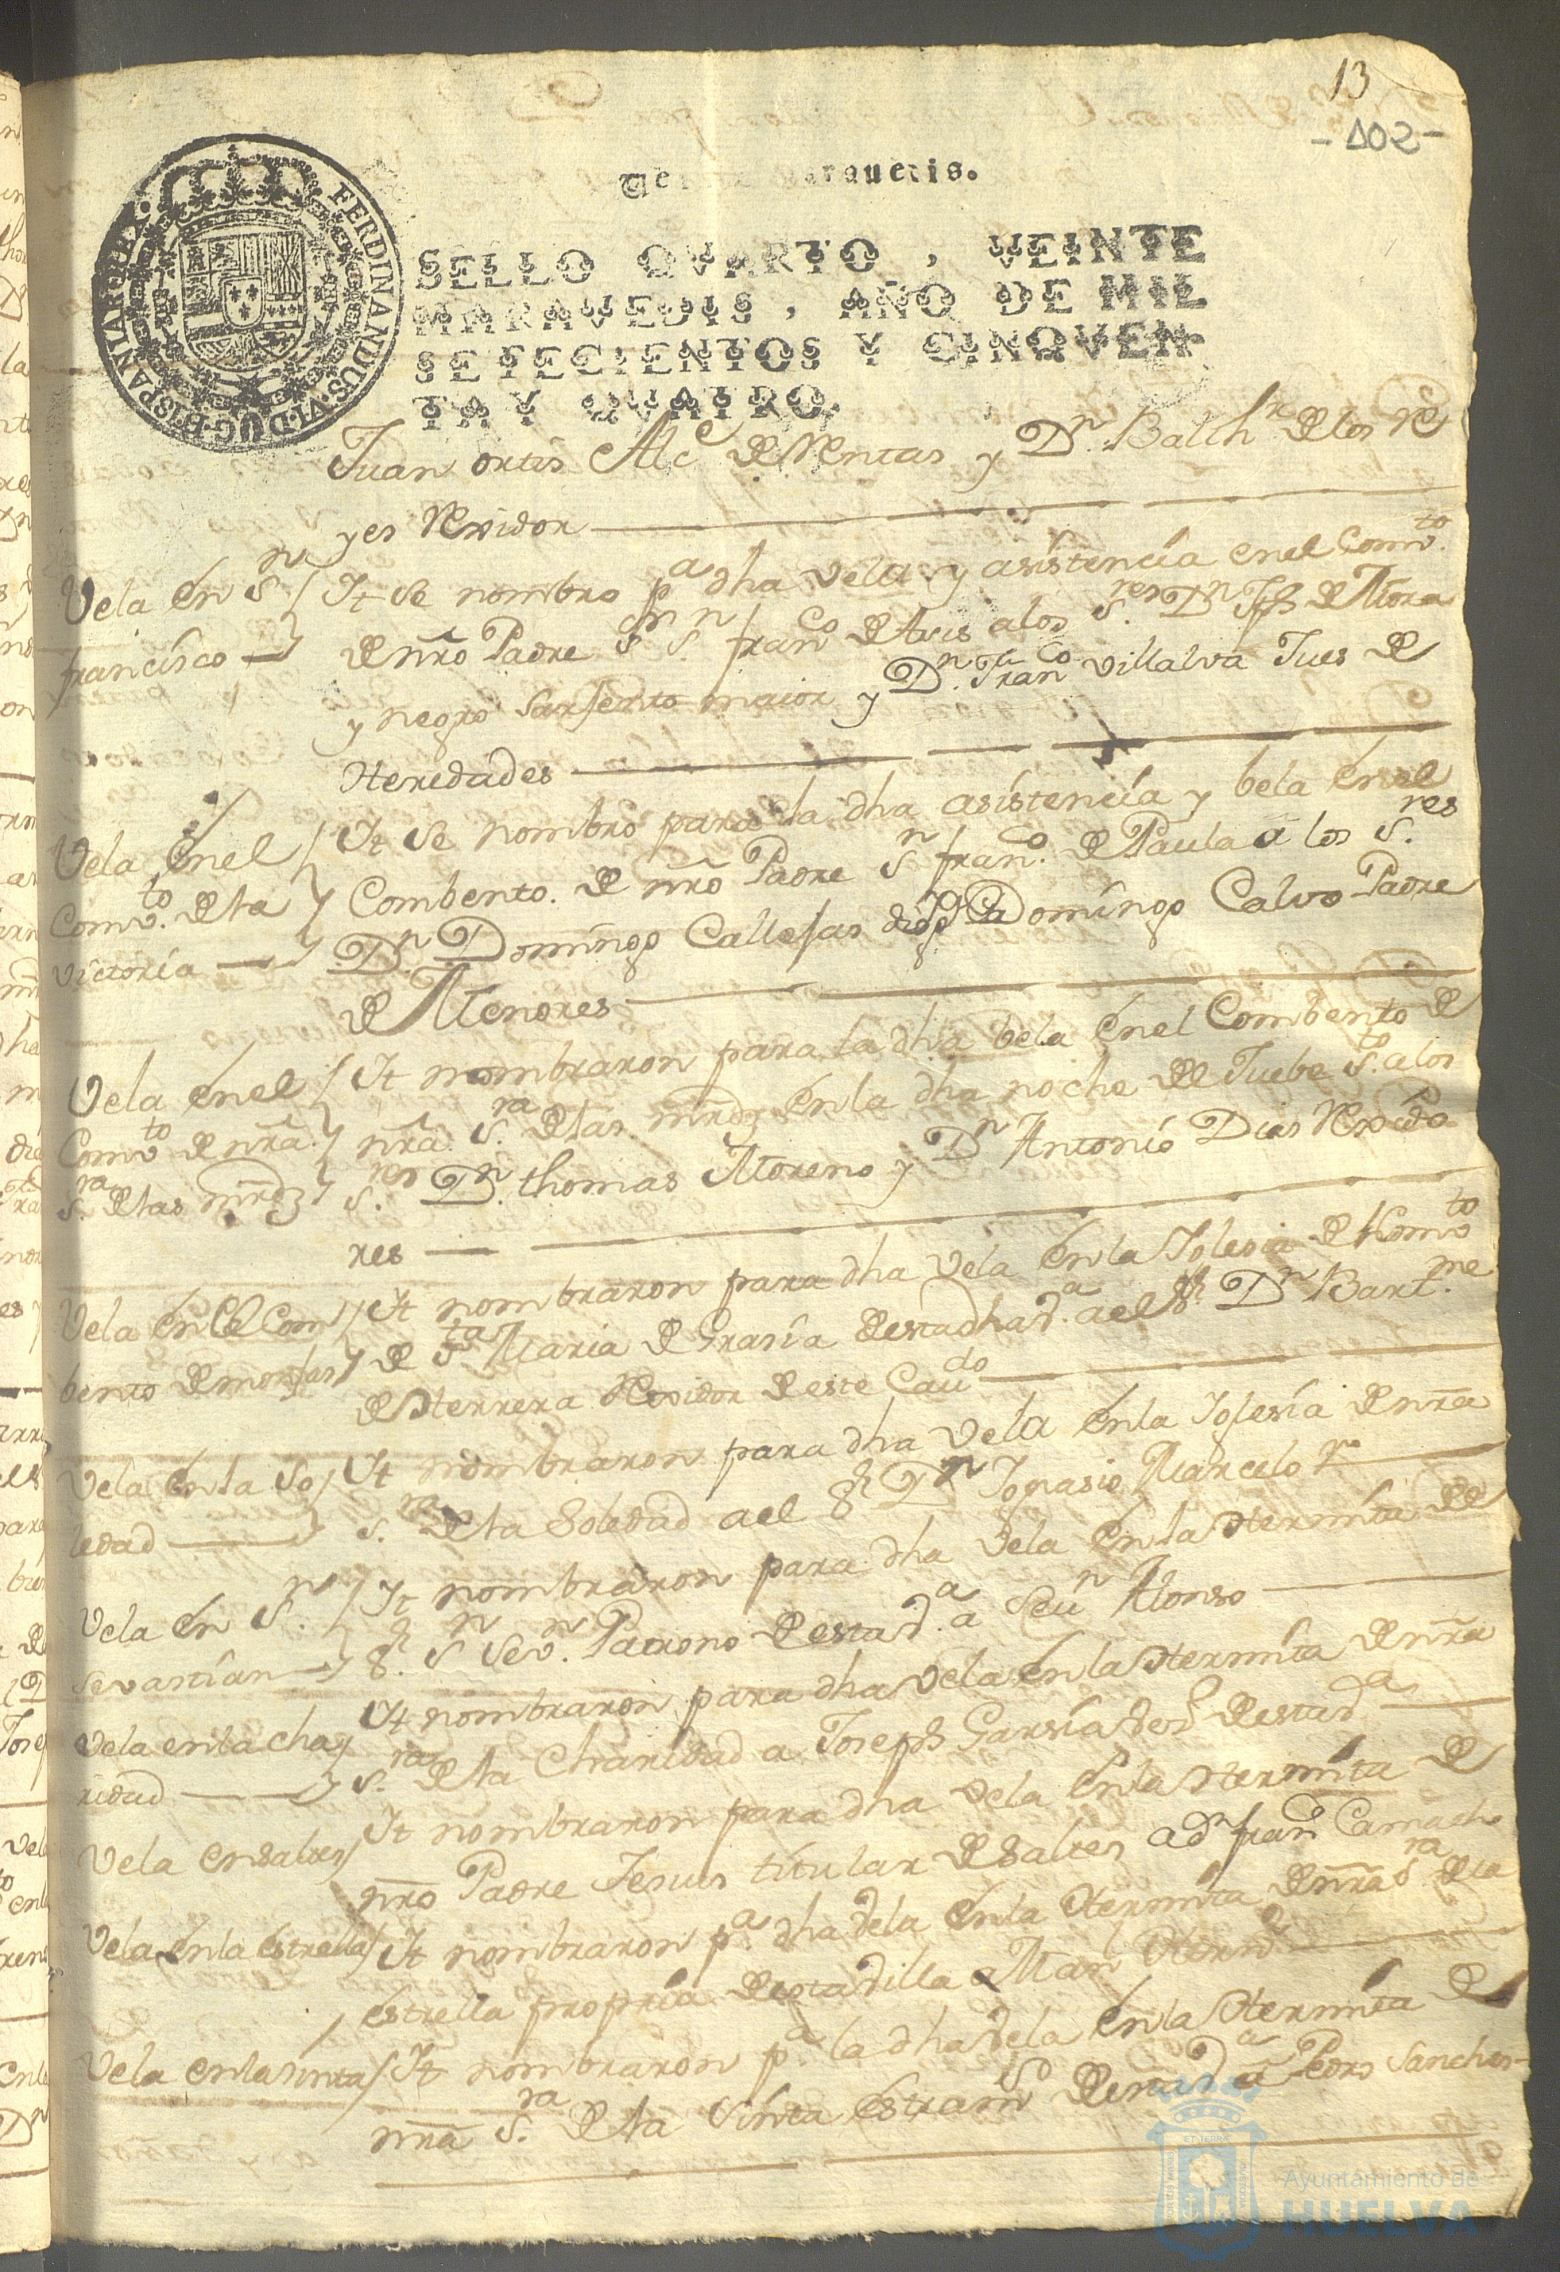 13
-102-
FERDINANDUS·VI·D·G·HISPANIAR·REX·
SELLO QVARTO, VEINTE
MARAVEDIS, AÑO DE MIL
SETECIENTOS Y CINQVEN-
TA Y QVATRO.
Juan ortis Alc.e de Rentas y Dn. Balthr. de los Re
yes Rexidor
Vela en Sn.
francisco
Yt se nombro pa dha vela y asistencia en el Comv.to
de nro Padre Sn. franco. de Asis a los S.res Dn. Jph de Mora
y negro Sarjento maior y Dn. Franco. villalva Jues de
Heredades
Vela en el
Comv.to de la
victoria
Yt se nombro para la dha asistencia y bela en el
Combento. de nro Padre Sn. franco. de Paula a los S.res
Dn. Domingo Callejas y Domingo Calvo Padre
de Menores
Vela en el
Comv.to de nra
S.ra de las mrdz
Yt nombraron para la dha bela en el Combento de
nra S.ra de las mrdz en la dha noche de Juebe S.to a los
S.res Dn. thomas Moreno y Dn Antonio Dias Rexido
res
Vela en el Com
bento de monjas
Yt nombraron para dha vela en la Iglesia del Comv.to
de S.ta Maria de Grasia de esta dha va. a el Sr. Dn Bart.me
de Herrera Rexidor de este Cavdo
Vela en la So
ledad
Yt nombraron para dha vela en la Iglesia de nra
S.ra de la Soledad a el Sr Dn Ignasio Marcelo
Vela en Sn.
Sevastian
Yt nombraron para dha vela en la Hermita de
Sr. Sn Sevn. Patrono de esta va. a Seun Alonso
Vela en la cha
ridad
Yt nombraron para dha vela en la Hermita de nra
S.ra de la Charidad a Joseph Garsia de esta va
Vela en saltes
Yt nombraron para dha vela en la Hermita de
nro Padre Jesus titular de Saltes a dn fran Camacho
Vela en la estrella
Yt nombraron pa dha vela en la Hermita de nra S.ra de la
estrella propria de esta villa a Manl
Vela en la sinta
Yt nombraron pa. la dha vela en la Hermita de
nra S.ra de la Sinta de esta va a Pedro Sanches
Ayuntamiento de
HUELVA